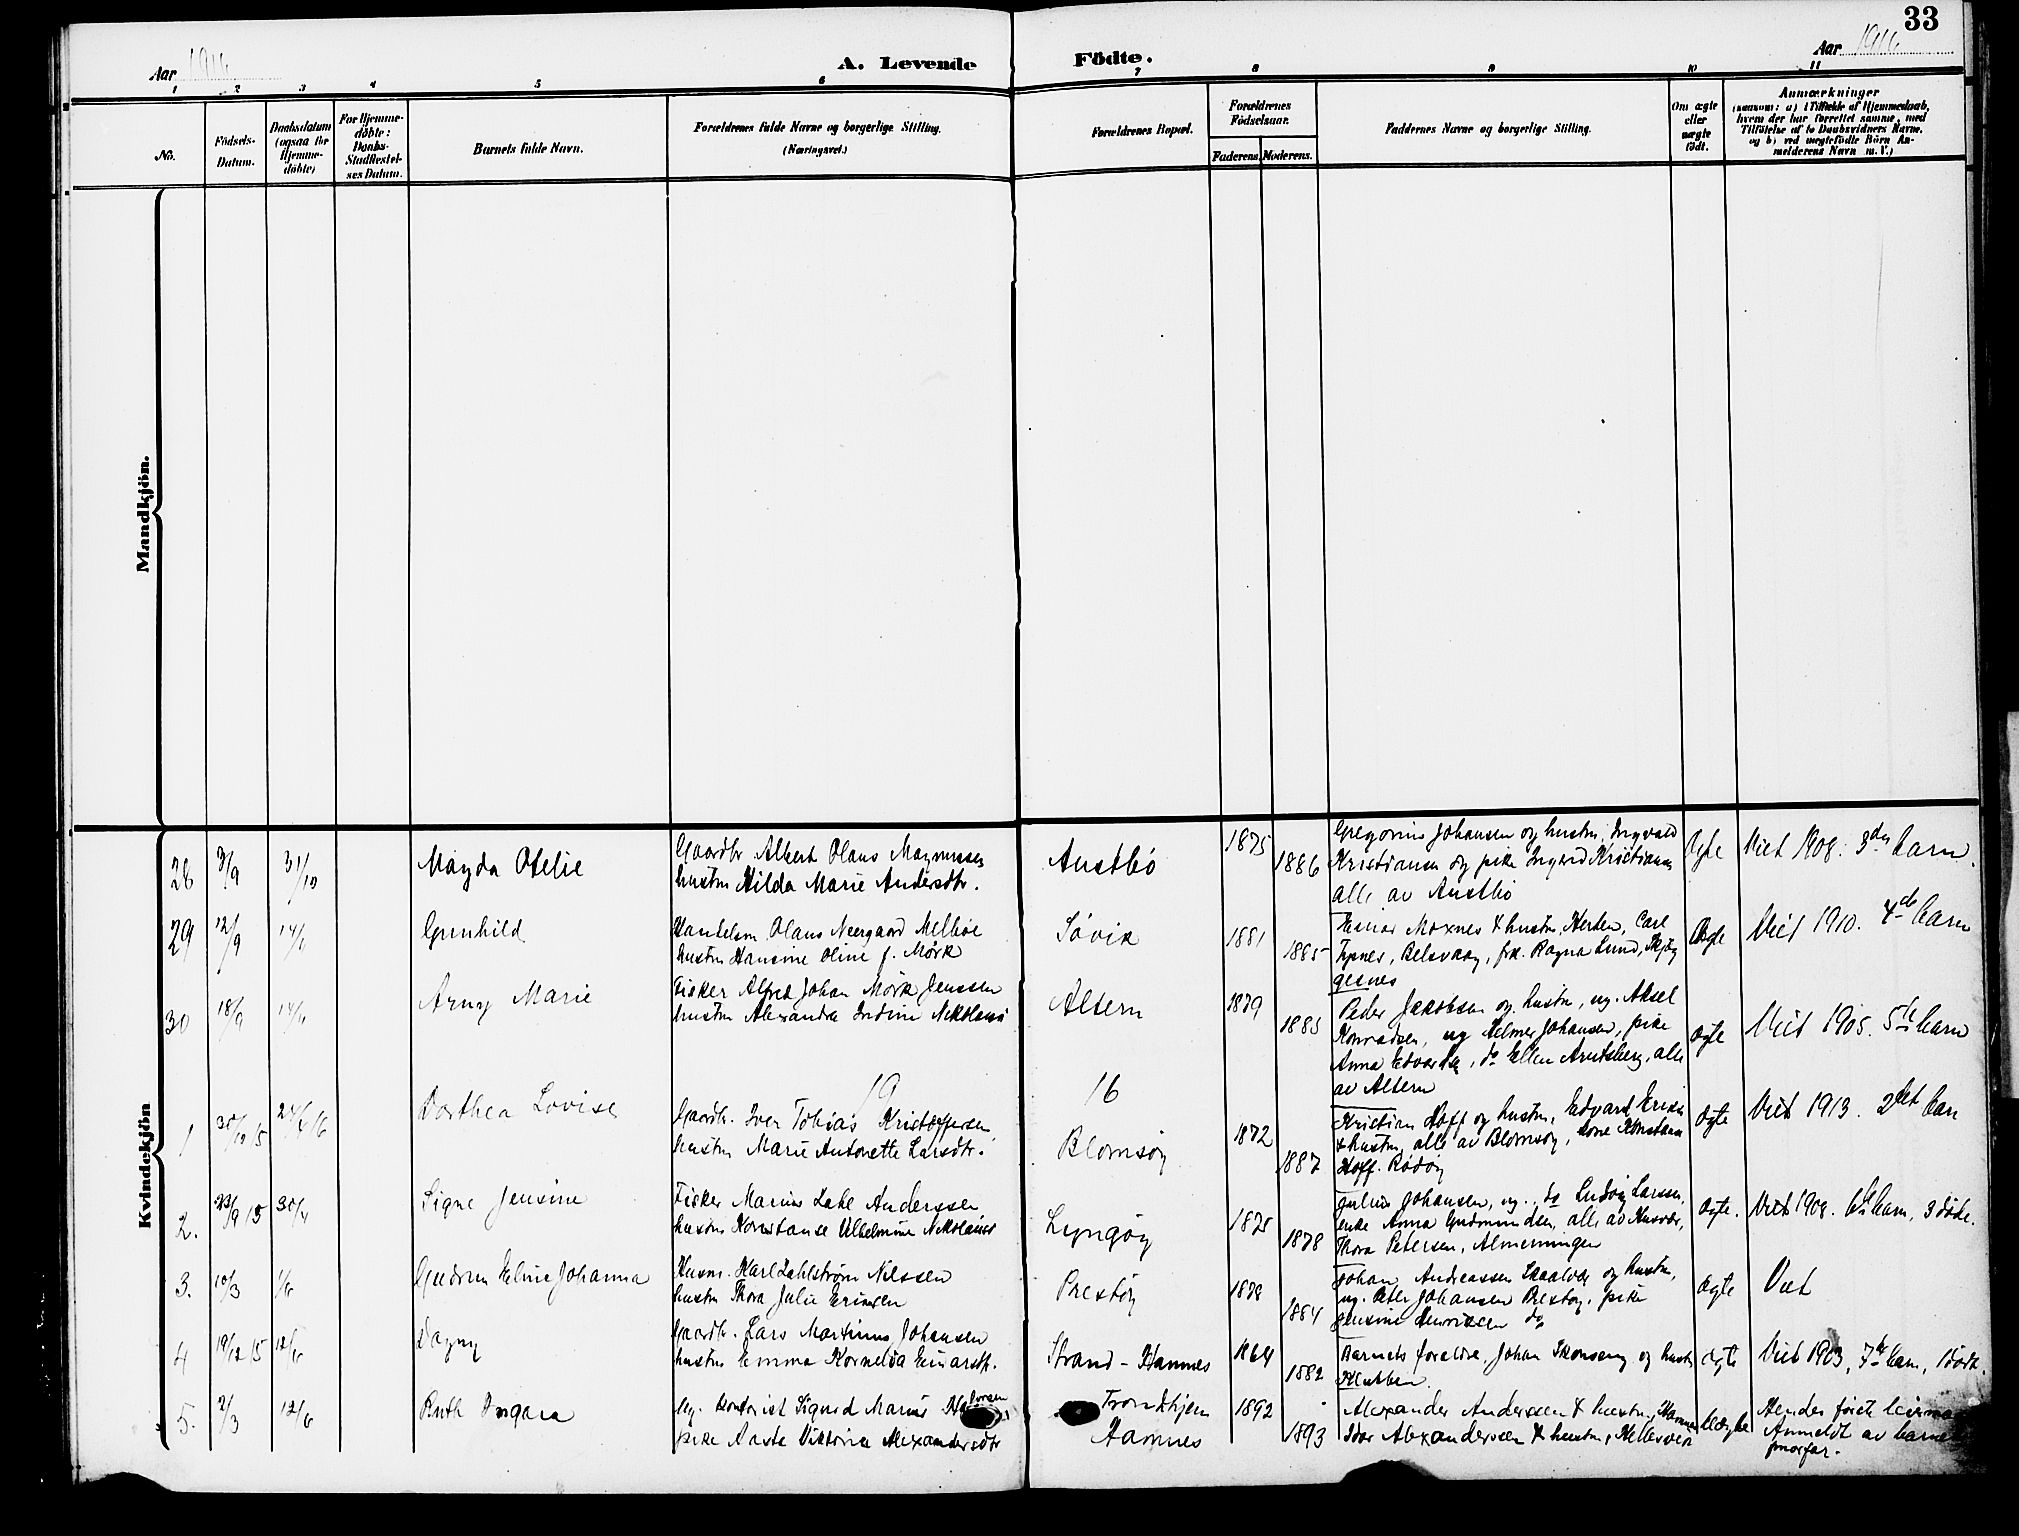 33
Aar 1916
A. Levende Födte.
Aar 1916
1 2 3 4 5 6 7 8 9 10 11
No.
Födsels-
Datum.
Daabsdatum
(ogsaa for
Hjemme-
døbte)
For Hjemme-
døbte:
Daabs-
Stadfæstel-
ses Datum.
Barnets fulde Navn.
Forældrenes fulde Navne og borgerlige Stilling.
(Næringsvei.)
Forældrenes Bopæl.
Forældrenes
Födselsaar.
Faderens. Moderens.
Faddernes Navne og borgerlige Stilling.
Om ægte
eller
uægte
født.
Anmærkninger
(saasom: a) i Tilfælde af Hjemmedaab,
hvem der har forrettet samme, med
Tilføielse af to Daabsvidners Navne,
og b) ved uægtefødte Börn An-
melderens Navn m. V.)
Mandkjön.
Kvindekjön
28 3/9 31/10 Magda Otelie
Gaardbr Albert Olaus Magnussen
hustru Hilda Marie Andersdtr.
Austbö 1875 1886
Gregorius Johansen og hustru, Ingvald
Kristiansen og pike Ingerid Kristiansen
alle av Austbö
Ægte Viet 1908. 3die barn.
29 12/9 14/11 Gunhild
Handelsm. Olaus Neergaard Melböe
hustru Hansine Oline f. Mørk
Søvik 1881 1885
Einar Moxnes & hustru, Herten, Carl
Typnes, Belsvaag, frk. Ragna Lund,
gesnes
Ægte Viet 1910. 4de barn
30 18/9 14/11 Arny Marie
Fisker Alfred Johan Mørk Jenssen
hustru Alexandra Indine Nikolaisd
Altern 1879 1885
Peder Jakobsen og hustru, ug. Aksel
Konradsen, ug Helmer Johansen, pike
Anna Edvardsen, do Ellen Arntsberg, alle
av Altern
Ægte Viet 1905. 5te barn
19 16
1 30/12 15 24/4 16 Dorthea Lovise
Gaardbr. Iver Tobias Kristoffersen
hustru Marie Antonette Larsdtr.
Blomsøy 1872 1887
Kristian Hoff og hustru, Edvard Eriksen
& hustru, alle av Blomsøy, Konstanse
Hoff. Rødøy
Ægte Viet 1913. 2det barn
2. 23/9 15 30/4 Signe Jensine
Fisker Marius Dahl Anderssen
hustru Konstanse Vilhelmine Nikolaisd
Lyngøy 1875 1878
Julius Johansen, ug., do Ludvig Larssen,
enke Anna Gudmundsen, alle av Husvær,
Thora Petersen, Almenningen
Ægte. Viet 1908. 6te barn, 3 døde.
3. 10/3 1/6 Gudrun Eline Johanna
Husm. Karl Dahlstrøm Nilssen
hustru Thora Julie Eriksen
Prestøy 1878 1884
Johan Andreassen Skaalvær og hustru,
ug. Peter Johansen Prestøy, pike
Jensine Henriksen do
Ægte Viet
4 19/12 15 12/6 Dagny
Gaardbr. Lars Martinus Johansen
hustru Emma Kornelda Einarsdtr.
Strand - Hamnes 1864 1882
Barnets foreldre, Johan Skonseng og hustru
Klubben
Ægte Viet 1903, 7de barn, 1 død.
5. 2/3 12/6 Ruth Ingara
Ug. kontorist Sigurd Marius
pike Aasta Viktoria Alexandersdtr
Trondhjem
Hamnes 1892 1893
Alexander Anderssen & hustru, Hamnes
Idar Alexanderssen & hustru,
Uægte
Hendes første
Anmeldt av barnets
morfar.